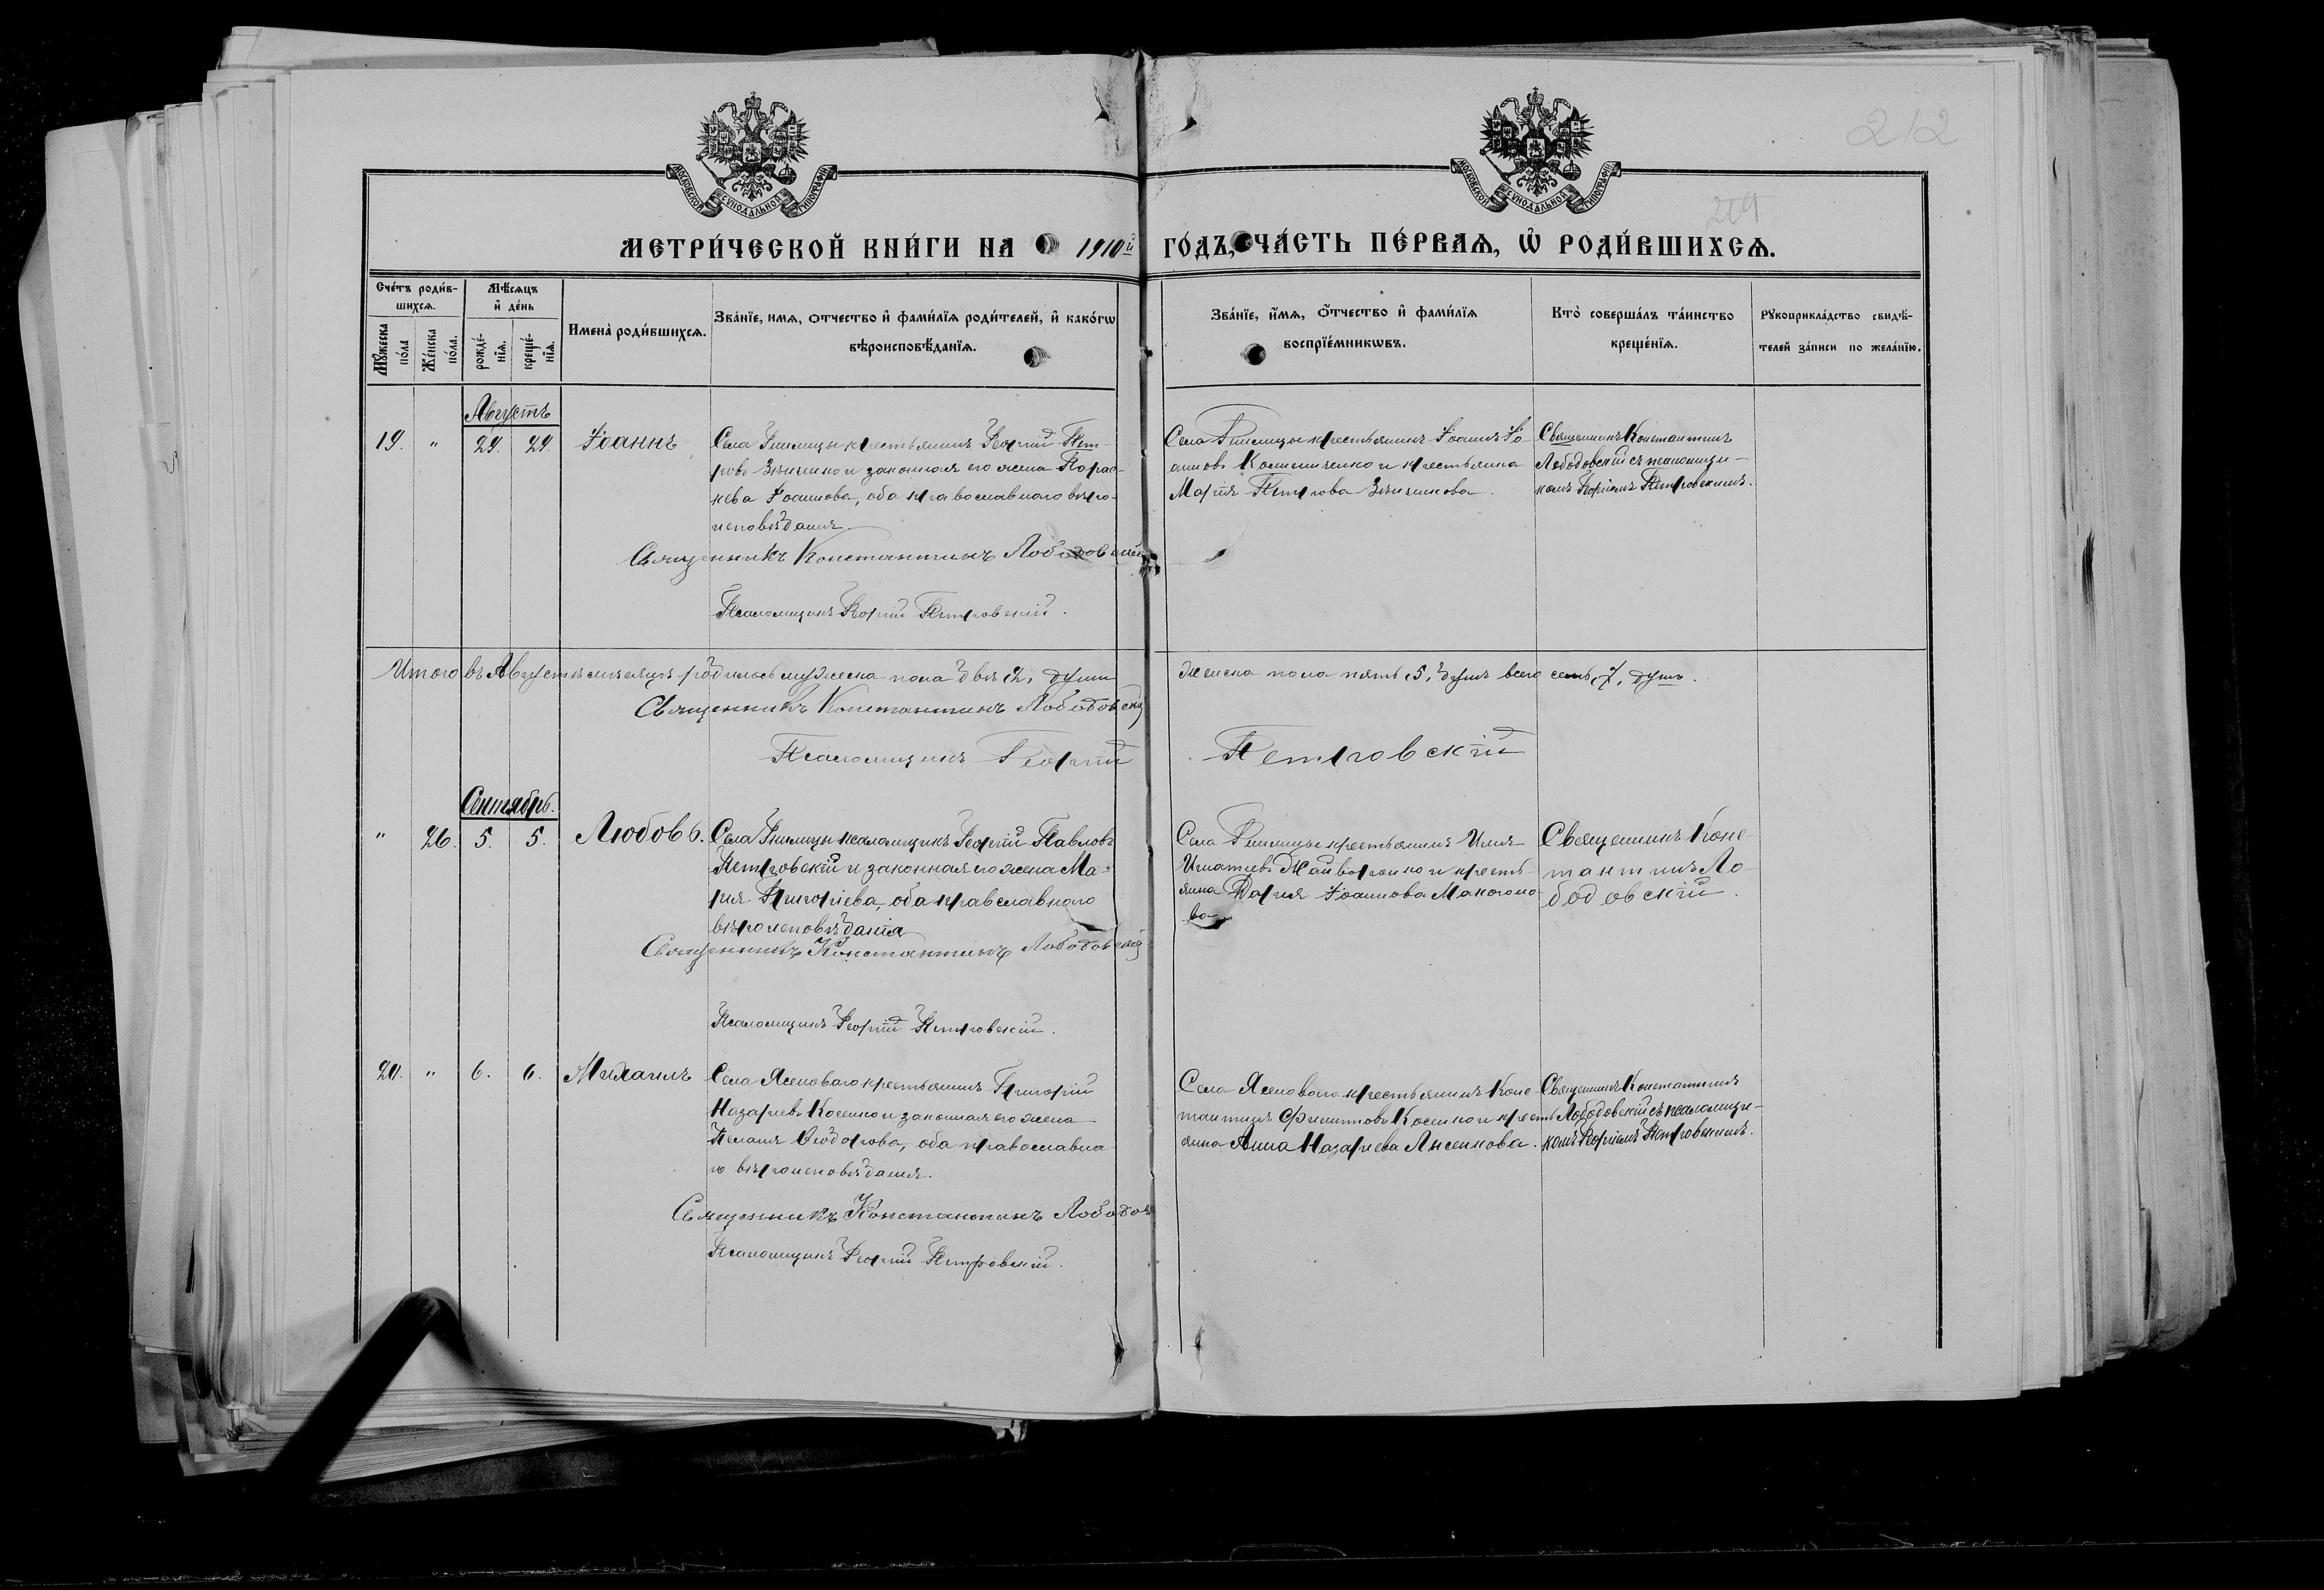 212
219
МОСКОВСКОЙ СѴНОДАЛЬНОЙ ТИПОГРАФІИ
МОСКОВСКОЙ СѴНОДАЛЬНОЙ ТИПОГРАФІИ
МЕТРИ́ЧЕСКОЙ КНИ́ГИ НА 1910й ГО́ДЪ, ЧА́СТЬ ПЕ́РВАѦ, Ѡ҆ РОДИ́ВШИХСѦ.
Сче́тъ роди́в-
шихсѧ.
Мѣ́сѧцъ
и҆ де́нь
Мꙋ́жеска
по́ла
Же́нска
по́ла.
рожде́-
нїѧ.
креще́-
нїѧ.
Имена̀ роди́вшихсѧ.
Зва́нїе, имѧ, ѻтчество и҆ фами́лїѧ роди́телей, и҆ како́гѡ
вѣроисповѣ́данїѧ.
Зва́нїе, и҆́мѧ, ѻ҆́тчество и҆ фами́лїѧ
воспрїе́мникѡвъ.
Кто̀ соверша́лъ та́инство
креще́нїѧ.
Рꙋкоприкла́дство свидѣ́-
телей за́писи по жела́нїю.
Августъ
19. " 29. 29. Іоаннъ
крестьянинъ Георгій Пет-
ровъ и законная его жена Парас-
кева Іоаннова, оба православнаго вѣро-
исповѣданія.
Священникъ Константинъ Лободовскій
Псаломщикъ Георгій Петровскій.
крестьянинъ Іоаннъ Іо-
анновъ и крестьянка
Марія Петрова
Священникъ Константинъ
Лободовскій съ псаломщи-
комъ Георгіемъ Петровскимъ.
Итого въ Августѣ мѣсяцѣ родилось мужеска пола двѣ, 2, души женска пола пять, 5, душъ всего семь, 7, душъ.
Священникъ Константинъ Лободовскій
Псаломщикъ Георгій Петровскій
Сентябрь.
" 26. 5. 5. Любовь.
псаломщикъ Георгій Павловъ
Петровскій и законная его жена Ма-
рія Григоріева, оба православнаго
вѣроисповѣданія
Священникъ Константинъ Лободовскій
Псаломщикъ Георгій Петровскій.
крестьянинъ Илія
Игнатіевъ и кресть-
янка Дарія Іоаннова Маконо-
ва
Священникъ Конс-
тантинъ Ло-
бодовскій.
20. " 6. 6. Михаилъ
Села Ясеноваго крестьянинъ Григорій
Назаріевъ Косенко и законная его жена
Пелагія Ѳеодорова, оба православна-
го вѣроисповѣданія.
Священникъ Константинъ Лободов
Псаломщикъ Георгій Петровскій.
Села Ясеноваго крестьянинъ Конс-
тантинъ Филиповъ Косенко и кресть-
янка Анна Назаріева Лысенкова.
Священникъ Константинъ
Лободовскій съ псаломщи-
комъ Георгіемъ Петровскимъ.